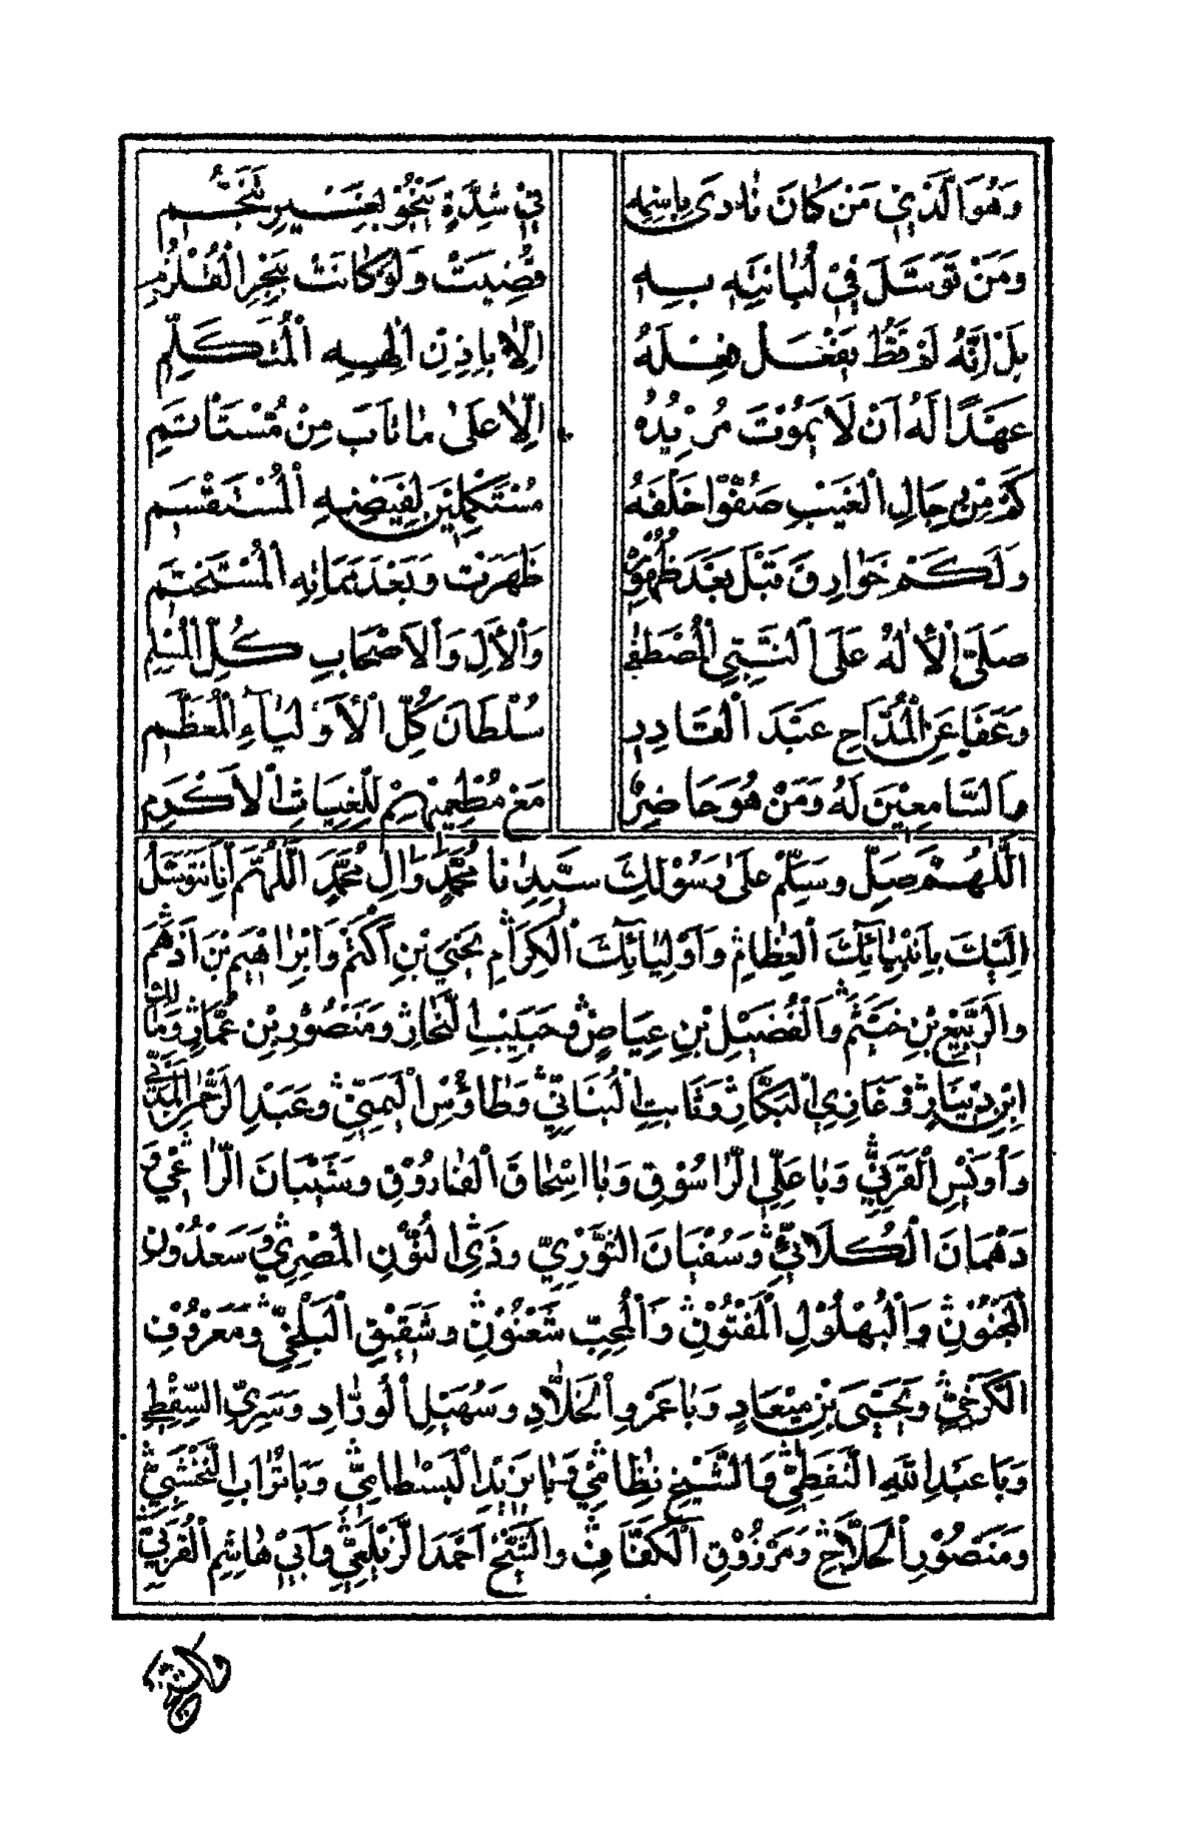 وَهُوَ الَّذِيْ مَنْ كَانَ نَادَى بِاسْمِهِ فِيْ شِدَّةٍ يَنْجُوْ بِغَيْرِ تَجَشُّمِ
وَمَنْ تَوَسَّلَ فِيْ لُبَانَتِهِ بِهِ قُضِيَتْ وَلَوْ كَانَتْ بِبَحْرِ الْقُلْزُمِ
بَلْ اِنَّهُ لَمْ قَطُّ يَفْعَلْ فِعْلَهُ اِلَّا بِاِذْنِ اِلٰهِهِ الْمُتَكَلِّمِ
عَهْدًا لَهُ اَنْ لَا يَمُوْتَ مُرِيْدُهُ اِلَّا عَلٰى مَا تَابَ مِنْ مُسْتَأْثَمِ
كَمْ مِنْ رِجَالِ الْغَيْبِ صَفُّوْا خَلْفَهُ مُسْتَكْمِلِيْنَ لِفَيْضِهِ الْمُسْتَقْسَمِ
وَلَكَمْ خَوَارِقَ قَبْلَ بَعْدَ ظُهُوْرِهِ ظَهَرَتْ وَبَعْدَ مَمَاتِهِ الْمُسْتَخْتَمِ
صَلَّى الْاِلٰهُ عَلَى النَّبِيِّ الْمُصْطَفٰى وَالْاٰلِ وَالْاَصْحَابِ كُلِّ الْمُسْلِمِ
وَعَفَا عَنِ الْمُدَّاحِ عَبْدَ الْقَادِرِ سُلْطَانَ كُلِّ الْاَوْلِيَاءِ الْمُعَظَّمِ
مَا لسَّامِعِيْنَ لَهُ وَمَنْ هُوَ حَاضِرٌ مَعْ مُطْعِمِيْهِمْ لِلْغِيَاثِ الْاَكْرَمِ
اَللّٰهُمَّ صَلِّ وَسَلِّمْ عَلٰى رَسُوْلِكَ سَيِّدِنَا مُحَمَّدٍ وَاٰلِ مُحَمَّدٍ اَللّٰهُمَّ اِنَّا نَتَوَسَّلُ
اِلَيْكَ بِاَنْبِيَائِكَ الْعِظَامِ وَاَوْلِيَائِكَ الْكِرَامِ يَحْيَى بْنِ اَكْثَمْ وَاِبْرَاهِيْمَ بْنَ اَدْهَمْ
وَالرَّبِيْعِ بْنِ خَيْثَمْ وَالْفُضَيْلِ بْنِ عِيَاضٍ وَحَبِيْبِ النَّجَّارْ وَمَنْصُوْرِ بْنِ عَمَّارْ وَمَالِكِ
ابْنِ دِيْنَارْ وَغَازِي الْبَكَّارْ وَثَابِتِ الْبُنَانِيّ وَطَاؤُسْ الْيَمَنِيّ وَعَبْدِ الرَّحْمٰنِ الْمَدَنِيّ
وَاُوَيْسِ الْقَرَنِيّ وَبَا عَلِيِّ الرَّاسُوْقِ وَبَا اِسْحَاقَ الْفَارُوْقِ وَشَيْبَانَ الرَّاعِيْ وَ
دَهْمَانَ الْكُلَابِيّ وَسُفْيَانَ الثَّوْرِيّ وَذِي النُّوْنِ الْمِصْرِيّ وَسَعْدُوْنِ
الْمَجْنُوْنْ وَالْبُهْلُوْلِ الْمَفْتُوْنْ وَالْمُحِبِّ شَعْنُوْنْ وَشَقِيْقِ الْبَلْخِيّ وَمَعْرُوْفِ
الْكَرْخِيّ وَيَحْيَى بْنِ مِيْعَادِ وَبَا عَمْرِو الْخَلَّادِ وَسُهَيْلِ الْوَرَّادِ وَسَرِيِّ السَّقَطِي
وَبَا عَبْدِ اللّٰهِ النَّفَطِيّ وَالشَّيْخِ نِظَامِيّ وَبَا يَزِيْدِ الْبَسْطَامِيّ وَبَا تُرَابِ النَّخْشَبِيّ
وَمَنْصُوْرِ الْحَلَّاجْ وَمَرْزُوْقِ الْكَفَّافِ وَالشَّيْخِ اَحْمَدَ الزَّيْلَعِيّ وَاَبِيْ هَاشِمِ الْقُرَبِيّ